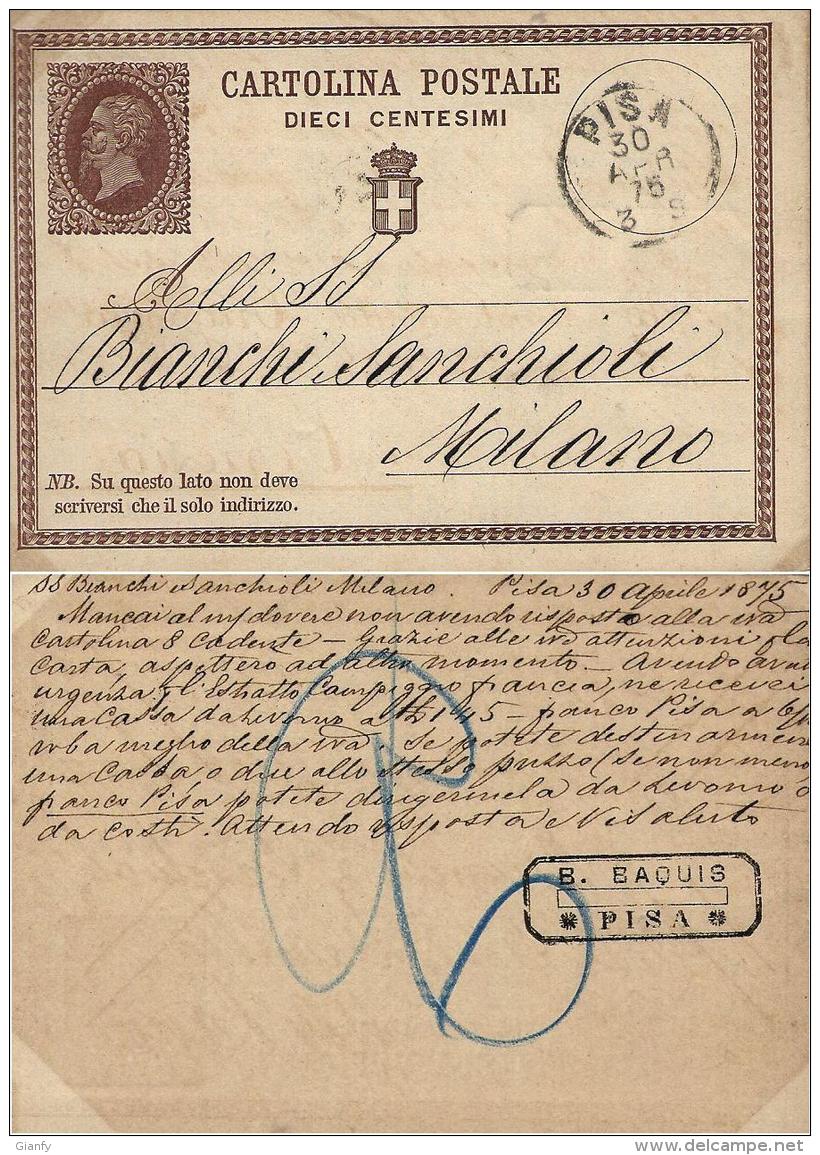 CARTOLINA POSTALE
DIECI CENTESIMI
PISA
30
APR
75
3 S
Alli SS
Bianchi Sanchioli
Milano
NB. Su questo lato non deve
scriversi che il solo indirizzo.
SS Bianchi Sanchioli Milano. Pisa 30 Aprile 1875
Mancai al mº dovere non avendo risposto alla
Cartolina 8 Cadente – Grazie alle attenzioni
Carta, aspetterò ad altro momento – Avendo avuto
urgenza l'Estratto Campeggio francia, ne ricevei
una Cassa da Livorno a 145 – franco Pisa a
roba meglio della vra. Se potete destinarmene
una Cassa o due allo stesso prezzo (se non meno)
franco Pisa potete dirigermela da Livorno o
da costì. Attendo risposta e Vi saluto
B. BAQUIS
PISA
Gianfy
www.delcampe.net